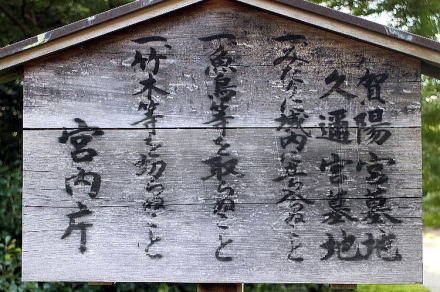 賀陽宮墓地
久邇宮墓地
一、みだりに域内に立ち入らぬこと
一、魚鳥等を取らぬこと
一、竹木等を切らぬこと
宮内庁